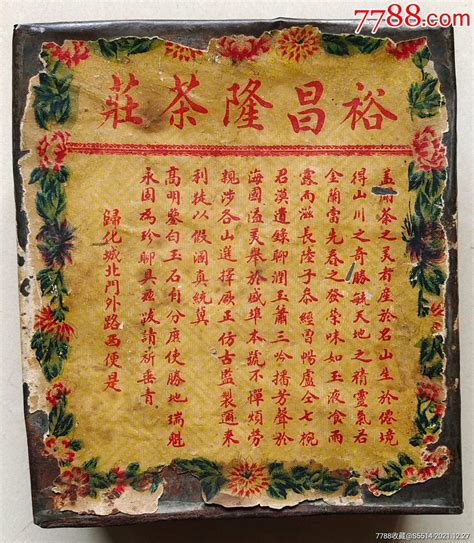 7788.com
裕昌隆茶莊
蓋聞茶之美者產於名山生於僊境
得山川之奇勝毓天地之精靈氣若
金蘭當先春之發榮味如玉液食雨
露而滋長陸子恭經曾暢盧仝七椀
君謨遺錄聊潤玉蕭三吟播芳聲於
海國溢美譽於盛埠本號不憚煩勞
親涉各山選擇正仿古監製邇來
利徒以假溷真統冀
高明鑒白玉石有分庶使勝地瑞魁
永固為珍聊具請祈垂青
歸化城北門外路西便是
7788收藏@S5514·2021.12.27